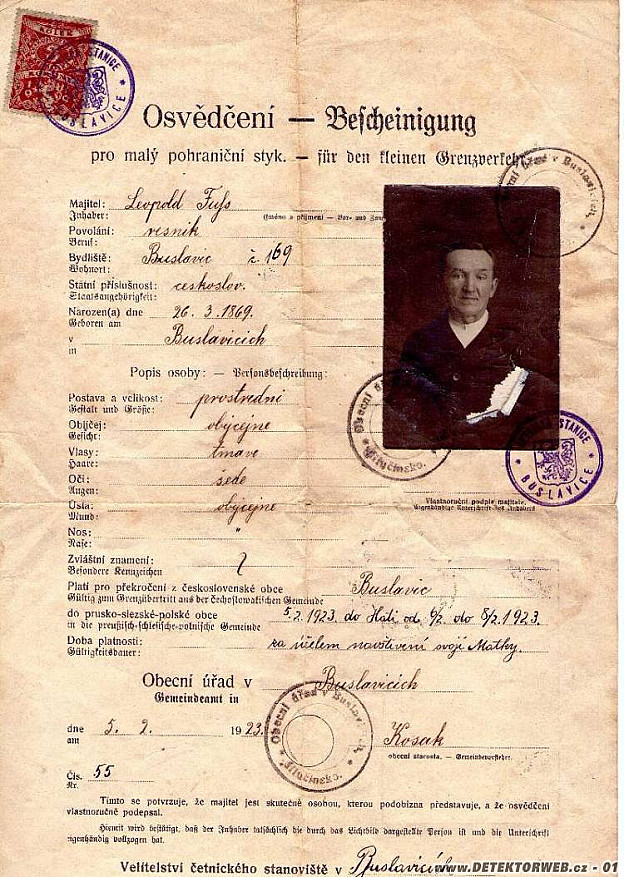 KOLEK
STANICE
BUSLAVICE
Osvědčení — Bescheinigung
pro malý pohraniční styk. — für den kleinen Grenzverkehr
Obecní úřad v Buslavicích
Majitel: Leopold Fuss
Inhaber: (Jméno a příjmení — Vor- und
Povolání: resnik
Beruf:
Bydliště: Buslavic č. 169
Wohnort:
Státní příslušnost: českoslov.
Staatsangehörigkeit:
Narozen(a) dne 26. 3. 1869.
Geboren am
v Buslavicich
in
Popis osoby: — Personsbeschreibung:
Postava a velikost: prostredni
Gestalt und Größe:
Obličej: obyčejne
Gesicht:
Vlasy: tmavé
Haare:
Oči: šede
Augen:
Ústa: obyčejne
Mund:
Nos: "
Nase:
Obecní
Hlučínsko.
STANICE
BUSLAVICE
Vlastnoruční podpis majitele.
Eigenhändige Unterschrift des Inhabers
Zvláštní znamení:
Besondere Kennzeichen
Platí pro překročení z československé obce Buslavic
Gültig zum Grenzübertritt aus der čechoslowakischen Gemeinde
do prusko-slezské-polské obce 5.2.1923. do Hati od 6/2. do 8/2.1923.
in die preußisch-schlesische-polnische Gemeinde
Doba platnosti: za účelem navštivení svojí Matky.
Gültigkeitsdauer:
Obecní úřad v Buslavicich
Gemeindeamt in
dne 5. 2. 1923.
am
Obecní úřad v Buslavicích
Hlučínsko.
Kosak
obecní starosta. — Gemeindevorsteher.
Čís. 55
Nr.
Tímto se potvrzuje, že majitel jest skutečně osobou, kterou podobizna představuje, a že osvědčení
vlastnoručně podepsal.
Hiemit wird bestätigt, daß der Inhaber tatsächlich die durch das Lichtbild dargestellte Person ist und die Unterschrift
eigenhändig vollzogen hat.
Velitelství četnického stanoviště v Buslavicích
www.DETEKTORWEB.cz - 01